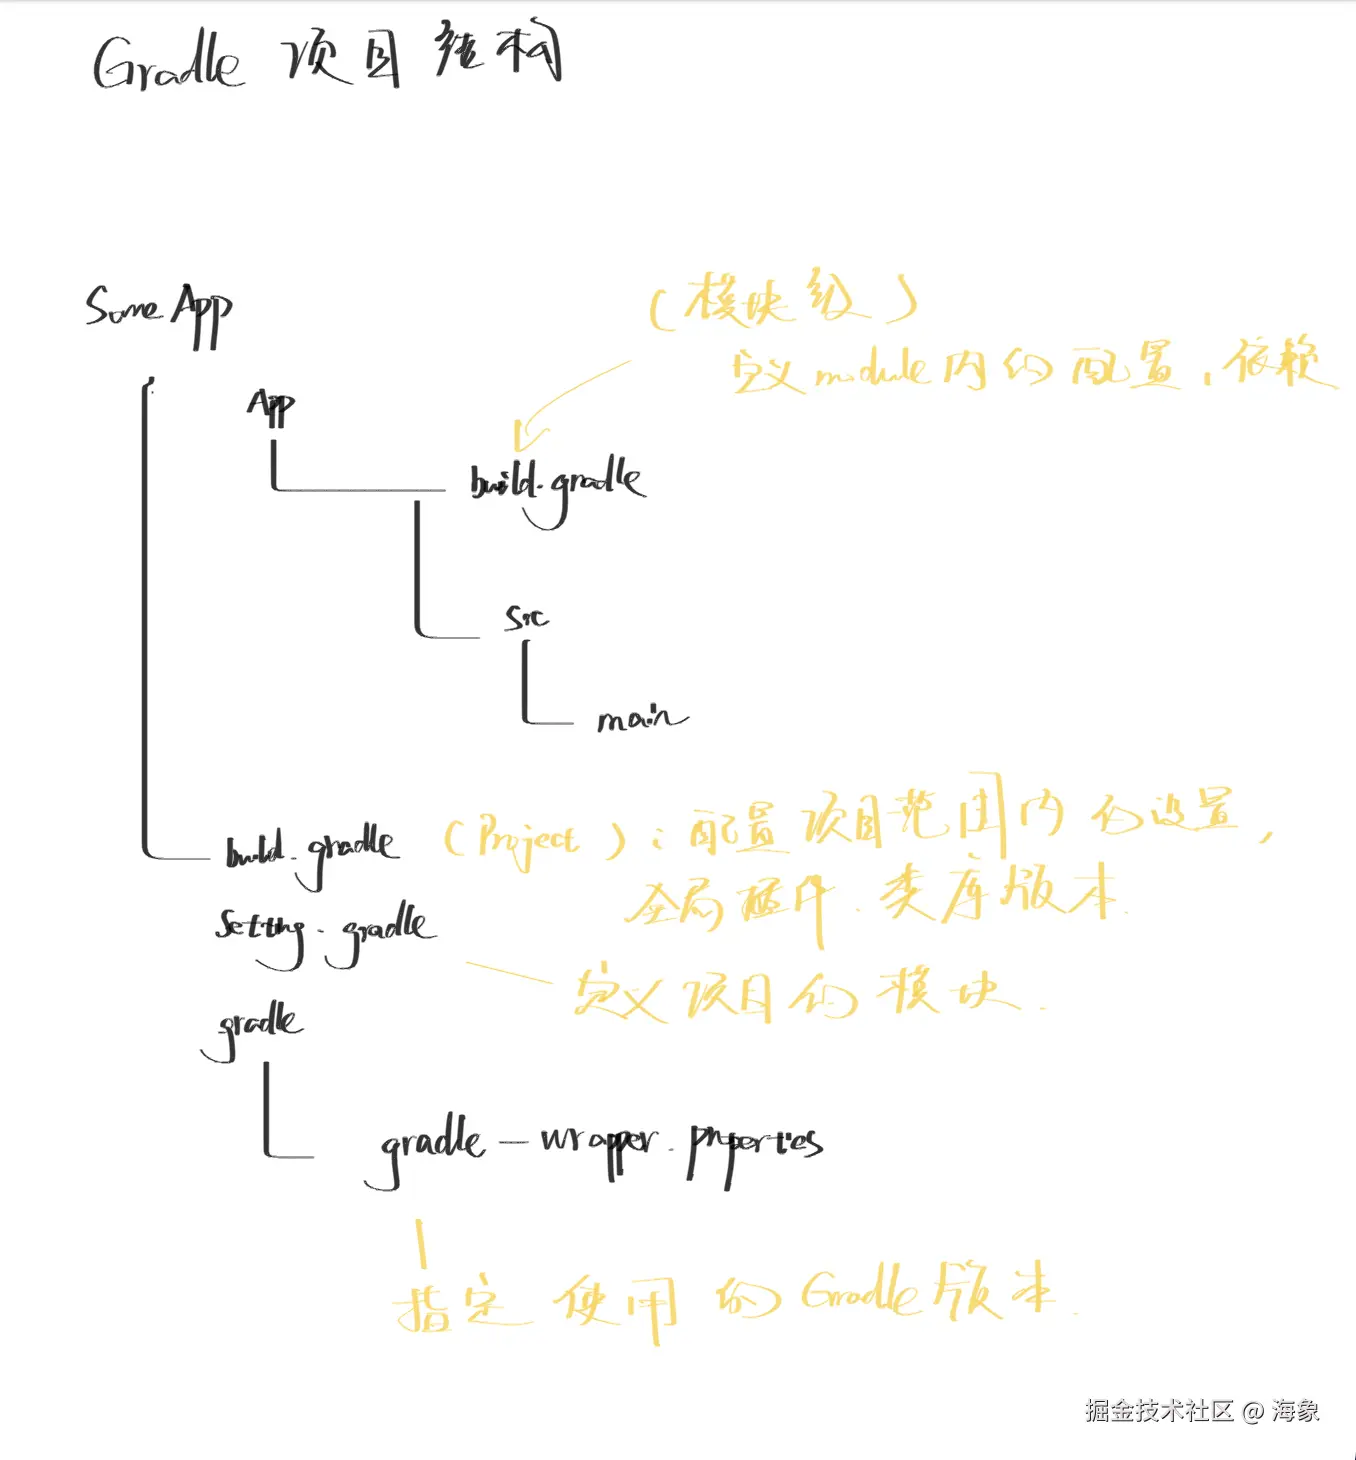 Gradle 项目结构
Some App
(模块级)
定义module内的配置,依赖
App
build.gradle
Src
main
build.gradle (Project):配置项目范围内的设置,
全局插件.类库版本.
Setting.gradle
定义项目的模块.
gradle
gradle-wrapper.properties
指定使用的Gradle版本.
掘金技术社区 @ 海象